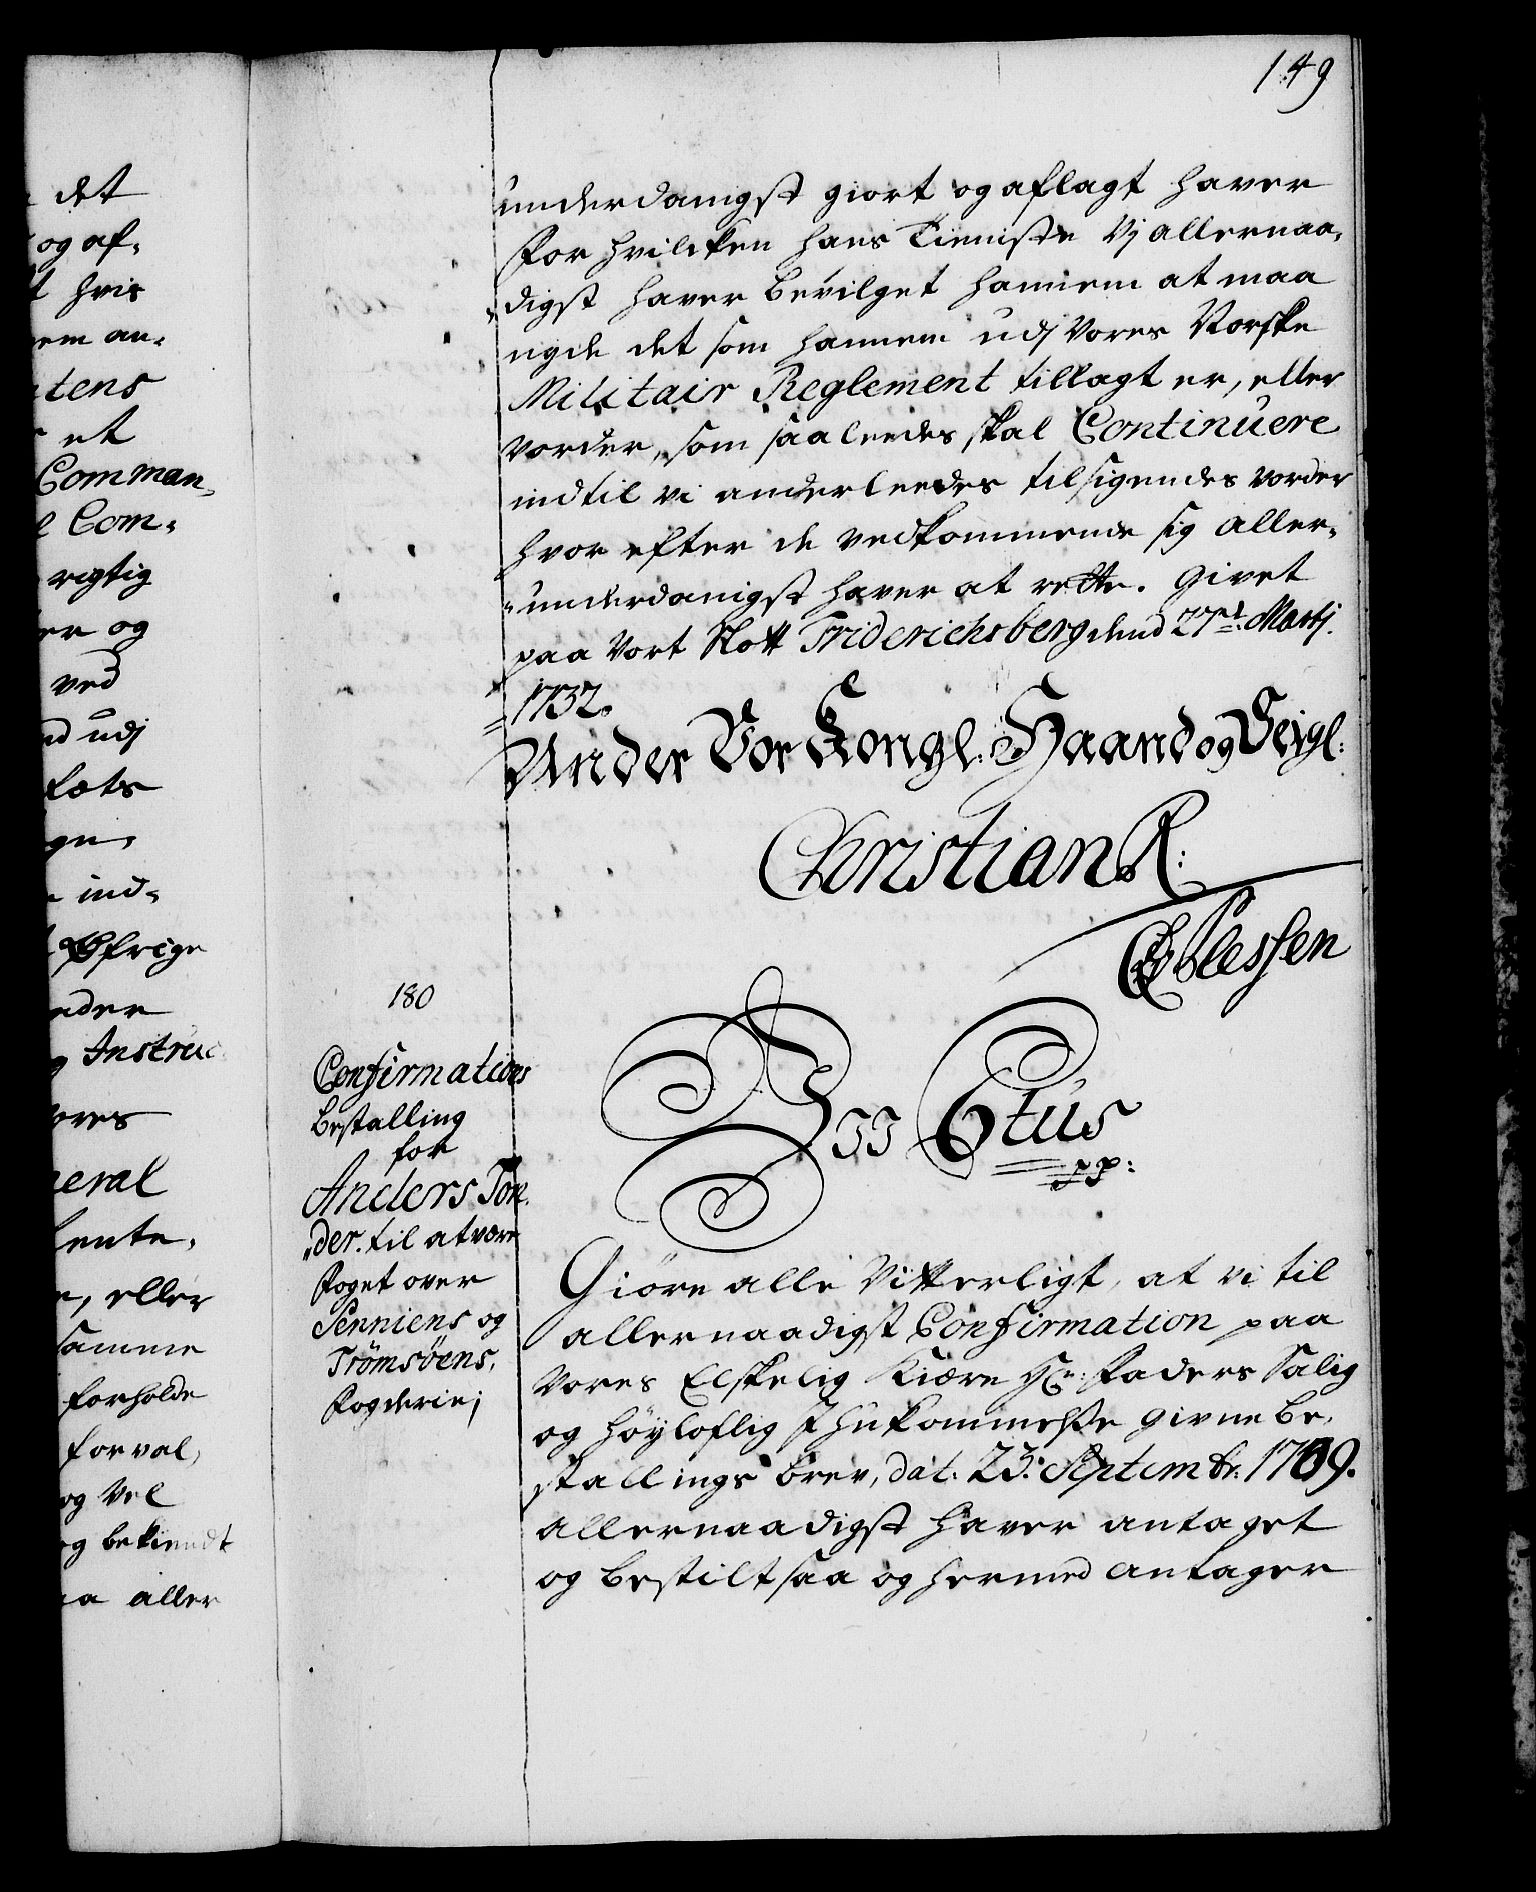 149
underdanigst giort og aflagt haver
for hvilcken hans Tienniste Vj allernaa-
digst haver bevilget hannem at maa
nyde det som hannem udj Vores Norske
Militair Reglement tillagt er, eller
vorder, som saaleedes skal Continuere
indtil vi anderleedes tilsigendes vorder
hvor efter de vedkommende sig aller-
underdanigst haver at rette. Givet
paa Vort Slott Friderichsberg dend 27de Martj.
1732.
Under Vor Kongl: Haand og Seigl:
Christian R:
CAvPlessen
180
Confirmations
bestalling
for
Anders Ton-
der. til at være
Foget over
Senniens og
Trömsöens,
Fogderie;
Vii C6tus
pp:
Giöre alle Vitterligt, at vi til
allernaadigst Confirmation paa
Vores Elskelig Kiære Hr: Faders Salig
og höyloflig Ihukommelse givne be-
stallings brev, dat. 23. Septembr: 1709.
allernaadigst haver antaget
og bestilt saa og hermed antager
det
og af-
hvis
em an-
tens
et
Comman-
Com-
rigtig
er og
ved
d udj
ind-
Øfrige
Instruc
ores
eral
ente,
, eller
samme
forholde
forval-
og Vel
og bekiendt
aller